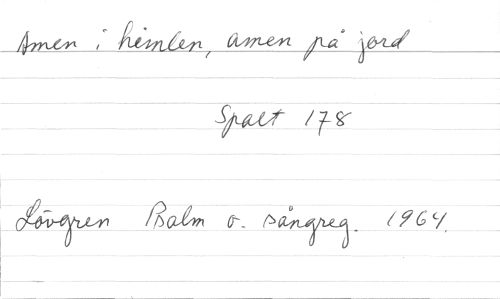 Amen i himlen, amen på jord
Spalt 178
Lövgren Psalm o. sångreg. 1964.